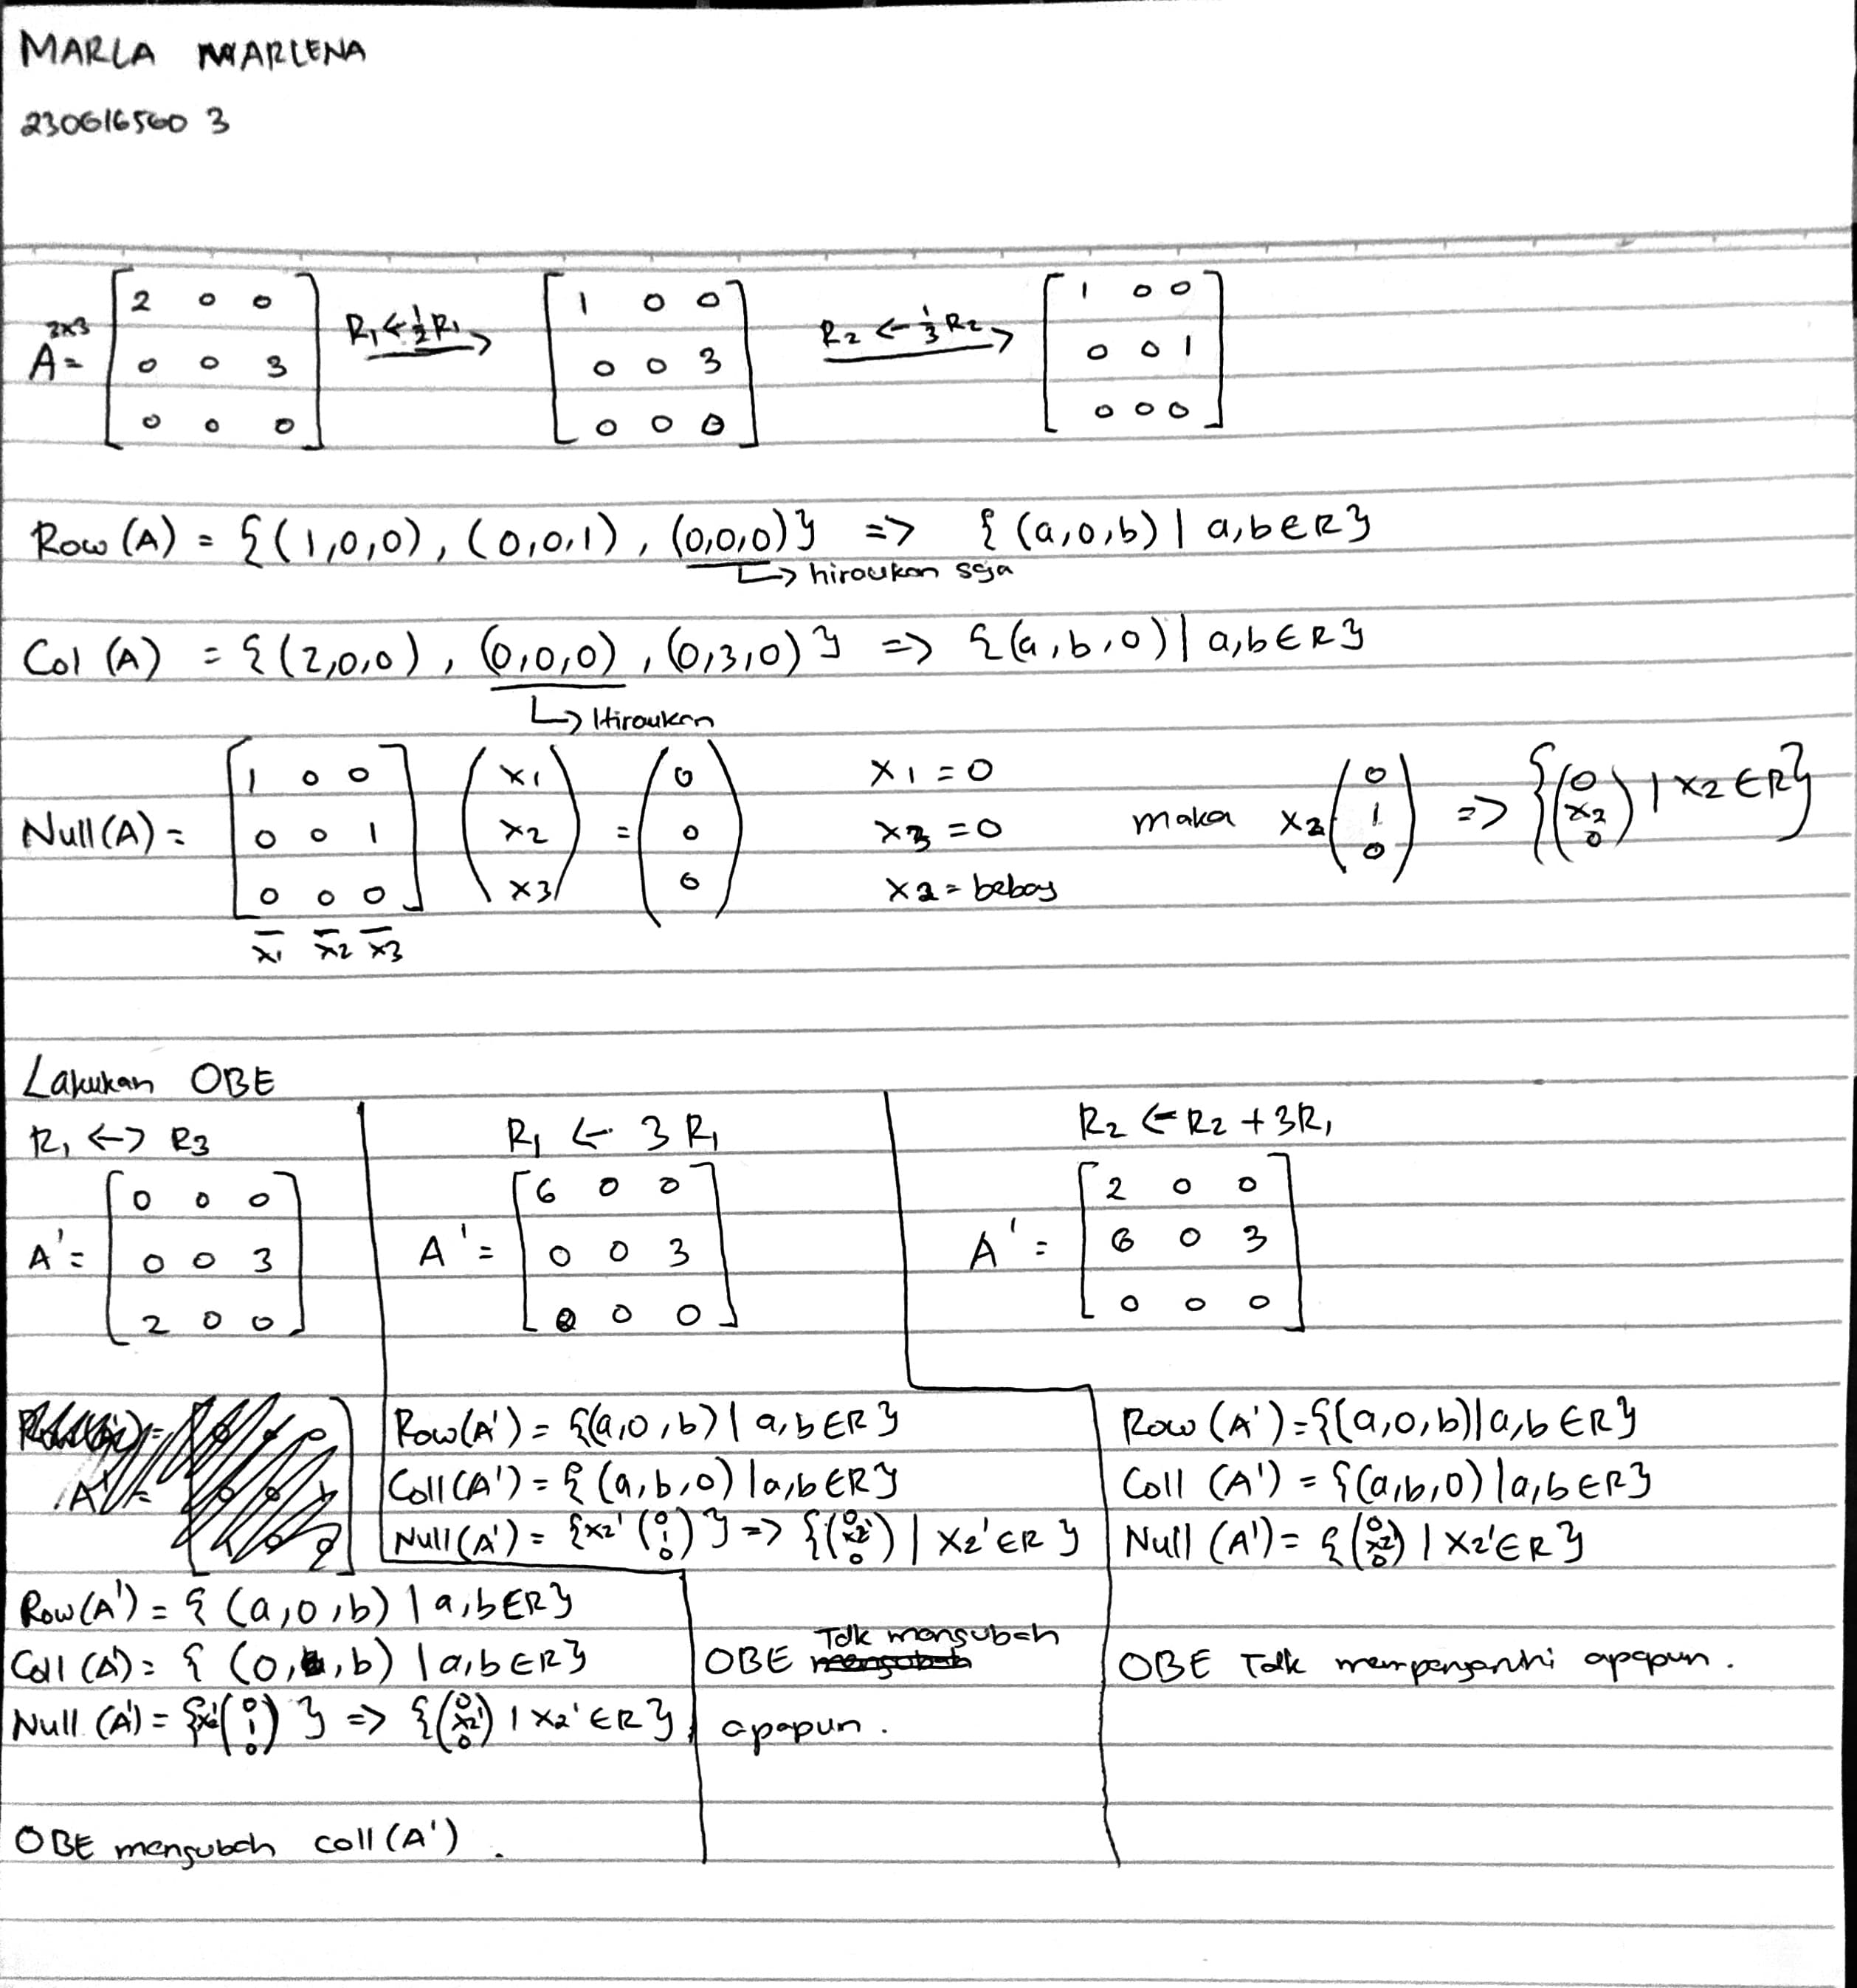 MARLA MARLENA
2306165603
A 3x3 = [2 0 0; 0 0 3; 0 0 0] R1 ← 1/2 R1 → [1 0 0; 0 0 3; 0 0 0] R2 ← 1/3 R2 → [1 0 0; 0 0 1; 0 0 0]
Row (A) = {(1,0,0), (0,0,1), (0,0,0)} => {(a,0,b) | a,b ∈ R}
↳ hiraukan saja
Col (A) = {(2,0,0), (0,0,0), (0,3,0)} => {(a,b,0) | a,b ∈ R}
↳ Hiraukan
Null (A) = [1 0 0; 0 0 1; 0 0 0] (x1; x2; x3) = (0; 0; 0)
x1 x2 x3
x1 = 0
x3 = 0
x2 = bebas
maka x2 (0; 1; 0) => {(0; x2; 0) | x2 ∈ R}
Lakukan OBE
R1 ↔ R3
A' = [0 0 0; 0 0 3; 2 0 0]
Row (A') = {(a,0,b) | a,b ∈ R}
Coll (A') = {(0, , b) | a,b ∈ R}
Null (A') = {x2' (0; 1; 0)} => {(0; x2'; 0) | x2' ∈ R}
OBE mengubah coll (A').
R1 ← 3 R1
A' = [6 0 0; 0 0 3; 0 0 0]
Row (A') = {(a,0,b) | a,b ∈ R}
Coll (A') = {(a,b,0) | a,b ∈ R}
Null (A') = {x2' (0; 1; 0)} => {(0; x2'; 0) | x2' ∈ R}
OBE Tdk mengubah
apapun.
R2 ← R2 + 3R1
A' = [2 0 0; 6 0 3; 0 0 0]
Row (A') = {(a,0,b) | a,b ∈ R}
Coll (A') = {(a,b,0) | a,b ∈ R}
Null (A') = {(0; x2'; 0) | x2' ∈ R}
OBE Tdk mempengaruhi apapun.